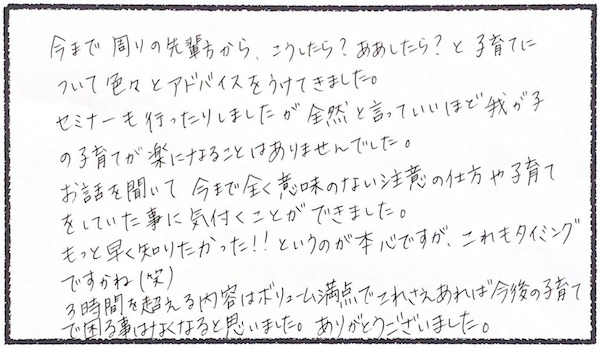 今まで周りの先輩方から、こうしたら?ああしたら?と子育てに
ついて色々とアドバイスをうけてきました。
セミナーも行ったりしましたが全然と言っていいほど我が子
の子育てが楽になることはありませんでした。
お話を聞いて今まで全く意味のない注意の仕方や子育て
をしていた事に気付くことができました。
もっと早く知りたかった!!というのが本心ですが、これもタイミング
ですかね(笑)
3時間を超える内容はボリューム満点でこれさえあれば今後の子育て
で困る事はなくなると思いました。ありがとうございました。